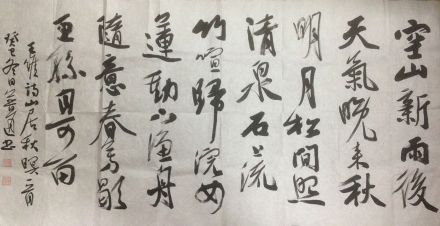 空山新雨後
天氣晚来秋
明月松間照
清泉石上流
竹喧歸浣女
蓮動下漁舟
隨意春芳歇
王孫自可留
王維詩山居秋暝一首
癸巳冬日